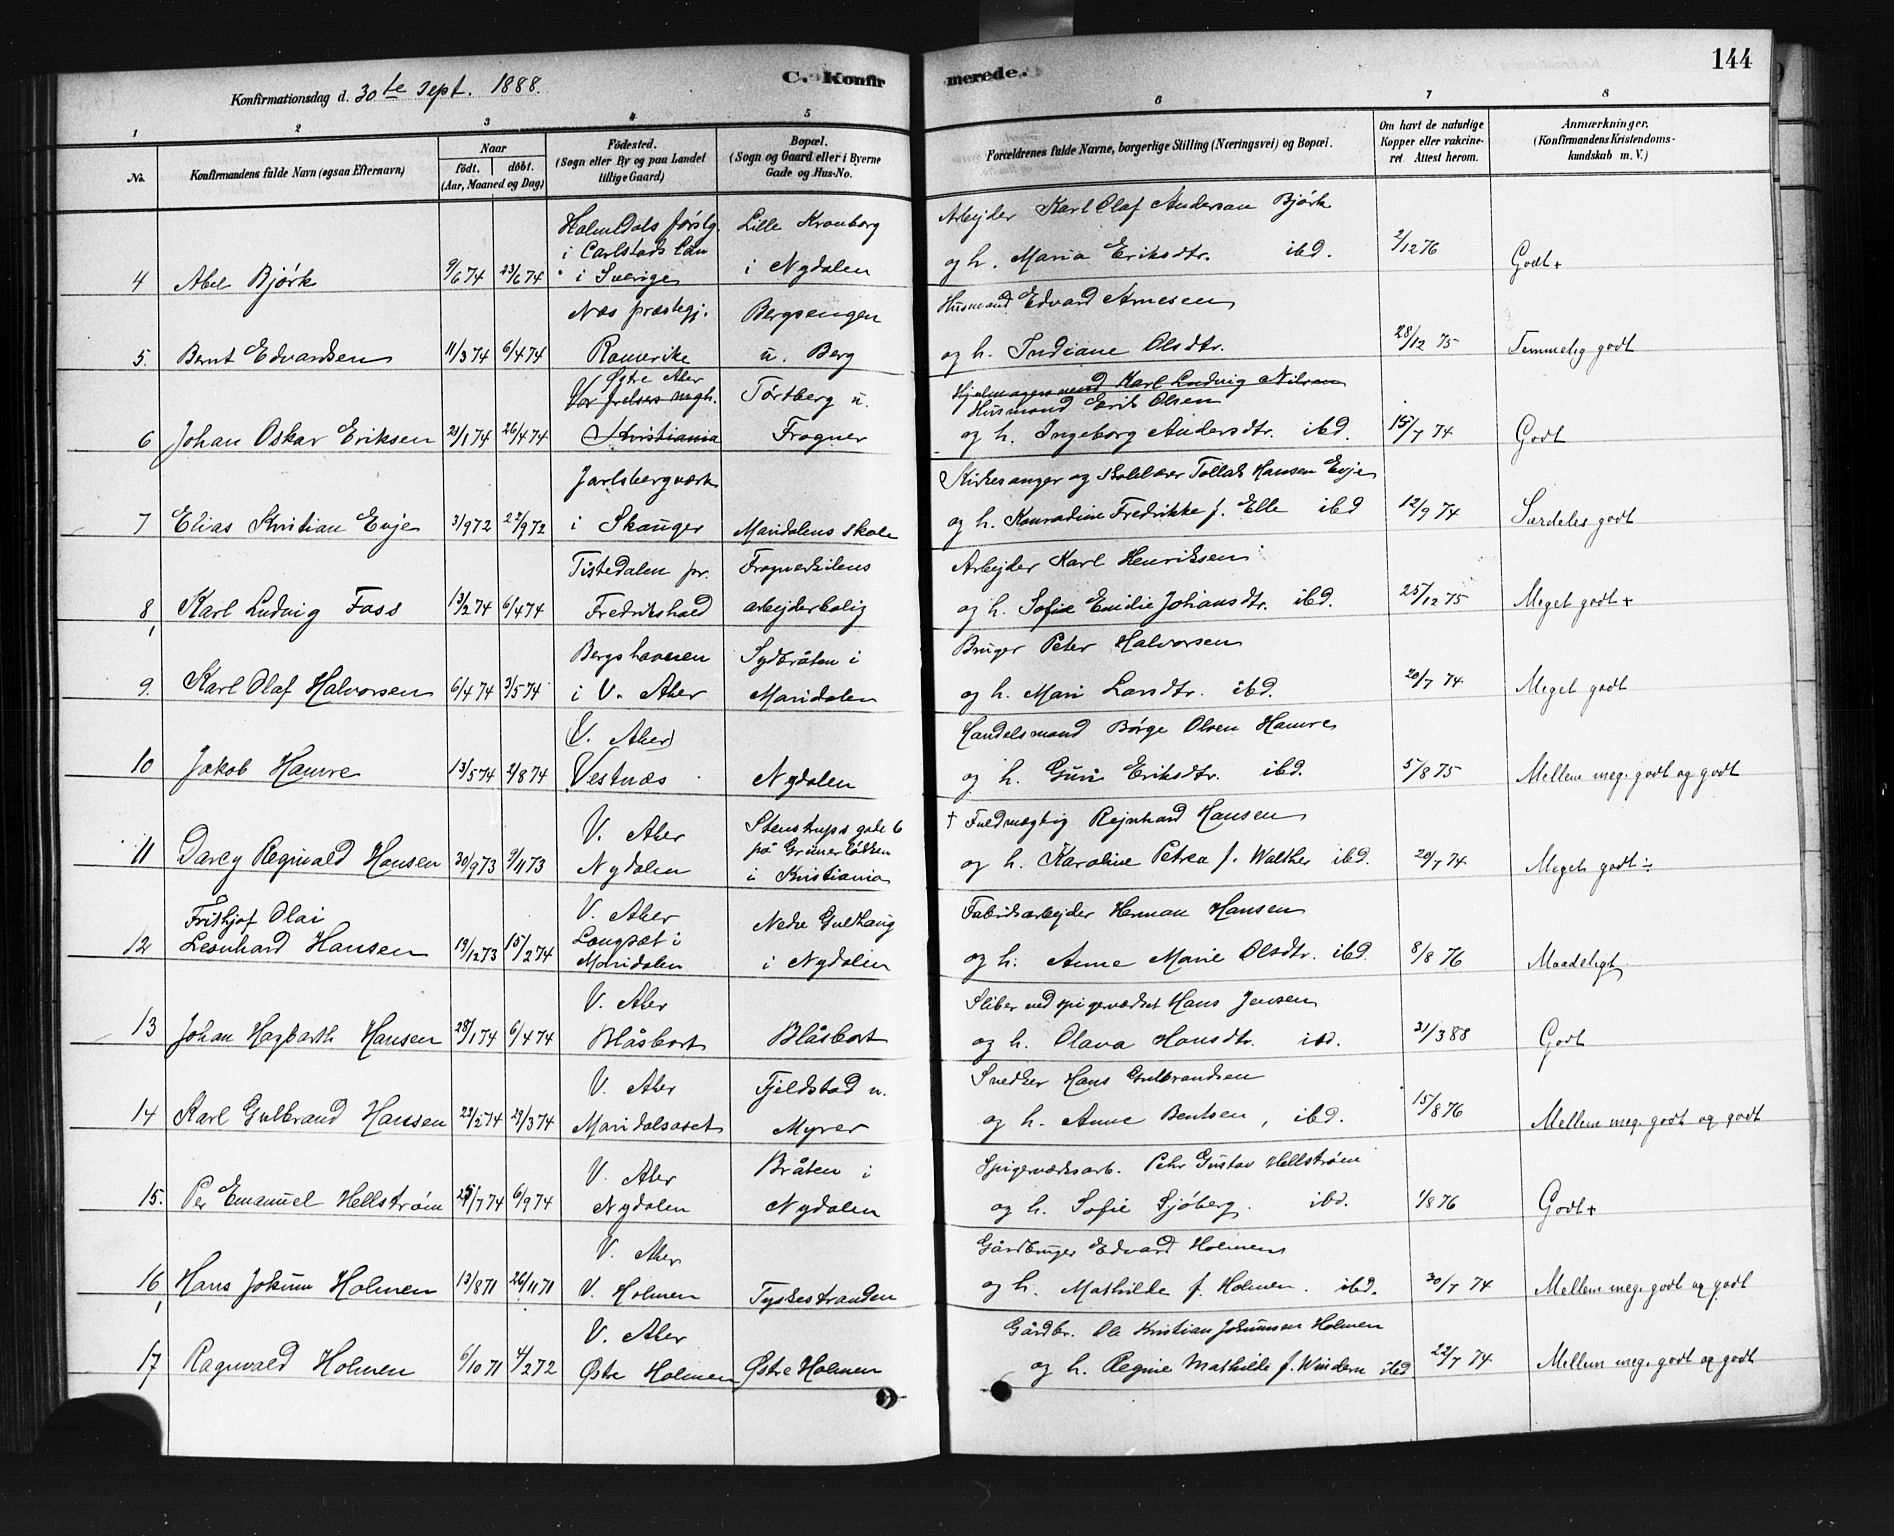 144
Konfirmationsdag d. 30te Sept. 1888. C. Konfirmerede.
1 2 3 4 5 6 7 8
No. Konfirmandens fulde Navn (ogsaa Efternavn) Naar født. døbt. (Aar, Maaned og Dag) Fødested. (Sogn eller By og paa Landet tillige Gaard) Bopæl. (Sogn og Gaard eller i Byerne Gade og Hus-No. Forældrenes fulde Navne, borgerlige Stilling (Næringsvei) og Bopæl. Om havt de naturlige Kopper eller vakcineret Attest herom. Anmærkninger. (Konfirmandens Kristendomskundskab m. V.)
Holmedals førstg. Lille Kronborg Arbejder Karl Olaf Anderson Bjørk
i Carlstads Län
4 Abel Bjørk 9/6 74 23/6 74 i Sverige i Nydalen og h. Maria Eriksdtr. ibd. 2/12 76 Godt+
Næs præstegj. Bergsengen Husmand Edvard Arnesen
5. Bernt Edvardsen 11/3 74 6/4 74 Romerike u. Berg og h. Indiane Olsdtr. 28/12 75 Temmelig godt
Østre Aker Hjulmagersvend Karl Ludvig Nilsen
Vor frelsers mgh. Tørtberg u. Husmand Erik Olsen
6 Johan Oskar Eriksen 21/1 74 26/4 74 Kristiania Frogner og h. Ingeborg Andersdtr. ibd. 15/7 74 Godt
Jarlsbergværk Kirkesanger og Skolelærer Tollak Hansen Evje
7 Elias Kristian Evje 3/9 72 22/9 72 i Skauger Maridalens skole og h. Konradine Fredrikke f. Elle ibd 12/9 74 Særdeles godt
Tistedalen pr. Frognerkilens Arbejder Karl Henriksen
8 Karl Ludvig Foss 13/2 74 6/4 74 Fredrikshald arbejderbolig og h. Sofie Emilie Johansdtr. ibd. 25/12 75 Meget godt+
Bergshavnen Sydbråten i Bruger Peter Halvorsen
9. Karl Olaf Halvorsen 6/4 74 3/5 74 i V. Aker Maridalen og h. Mari Larsdtr. ibd. 20/7 74 Meget godt
V. Aker Handelsmand Børge Olsen Hamre
10 Jakob Hamre 13/5 74 2/8 74 Vestnæs Nydalen og h. Guri Eriksdtr. ibd. 5/8 75 Mellem meg. godt og godt
V. Aker Stenstrups gade 6 † Fuldmægtig Rejnhard Hansen
på Grünerløkken
11 Darcy Reginald Hansen 30/9 73 9/11 73 Nydalen i Kristiania og h. Karoline Petrea f. Walther ibd. 20/7 74 Meget godt÷
Frithjof Olai V. Aker Nedre Gulhaug Fabriksarbejder Herman Hansen
12 Leonhard Hansen 19/12 73 15/2 74 Langsæt i Maridalen i Nydalen og h. Anne Marie Olsdtr. ibd. 8/8 76 Maadeligt
V. Aker Sliber ved spigerverket Hans Jensen
13 Johan Hagbarth Hansen 28/1 74 6/4 74 Blåsbort Blåsbort og h. Olava Hansdtr. ibd. 21/3 88 Godt
V. Aker Fjeldstad u. Snedker Hans Gulbrandsen
14 Karl Gulbrand Hansen 22/2 74 29/3 74 Maridalsoset Myrer og h. Anne Bentsen, ibd. 15/8 76 Mellem meg. godt og godt
V. Aker Bråten i Spigerverksarb. Pehr Gustav Hellstrøm
15. Per Emanuel Hellstrøm 25/7 74 6/9 74 Nydalen Nydalen og h. Sofie Sjöberg. ibd. 1/8 76 Godt+
V. Aker Gårdbruger Edvard Holmen
16 Hans Jokum Holmen 13/8 71 26/11 71 V. Holmen Tyskestranden og h. Mathilde f. Holmen. ibd. 30/7 74 Mellem meg. godt og godt
V. Aker Gårdbr. Ole Kristian Jokumsen Holmen
17 Ragnvald Holmen 6/10 71 4/2 72 Østre Holmen Østre Holmen og h. Regine Mathilde f. Windern ibd 22/7 74 Mellem meg. godt og godt